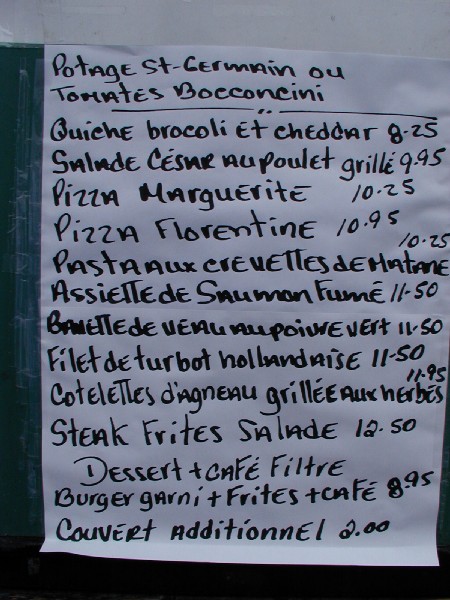 Potage St-Germain ou
Tomates Bocconcini
Quiche brocoli et cheddar 8.25
Salade César au poulet grillé 9.95
Pizza Marguerite 10.25
Pizza Florentine 10.95
10.25
Pasta aux crevettes de Matane
Assiette de Saumon Fumé 11-50
Bavette de veau au poivre vert 11-50
Filet de turbot hollandaise 11-50
11.95
Cotelettes d'agneau grillée aux herbes
Steak Frites Salade 12.50
Dessert + café Filtre
Burger garni + Frites + café 8.95
Couvert additionnel 2.00